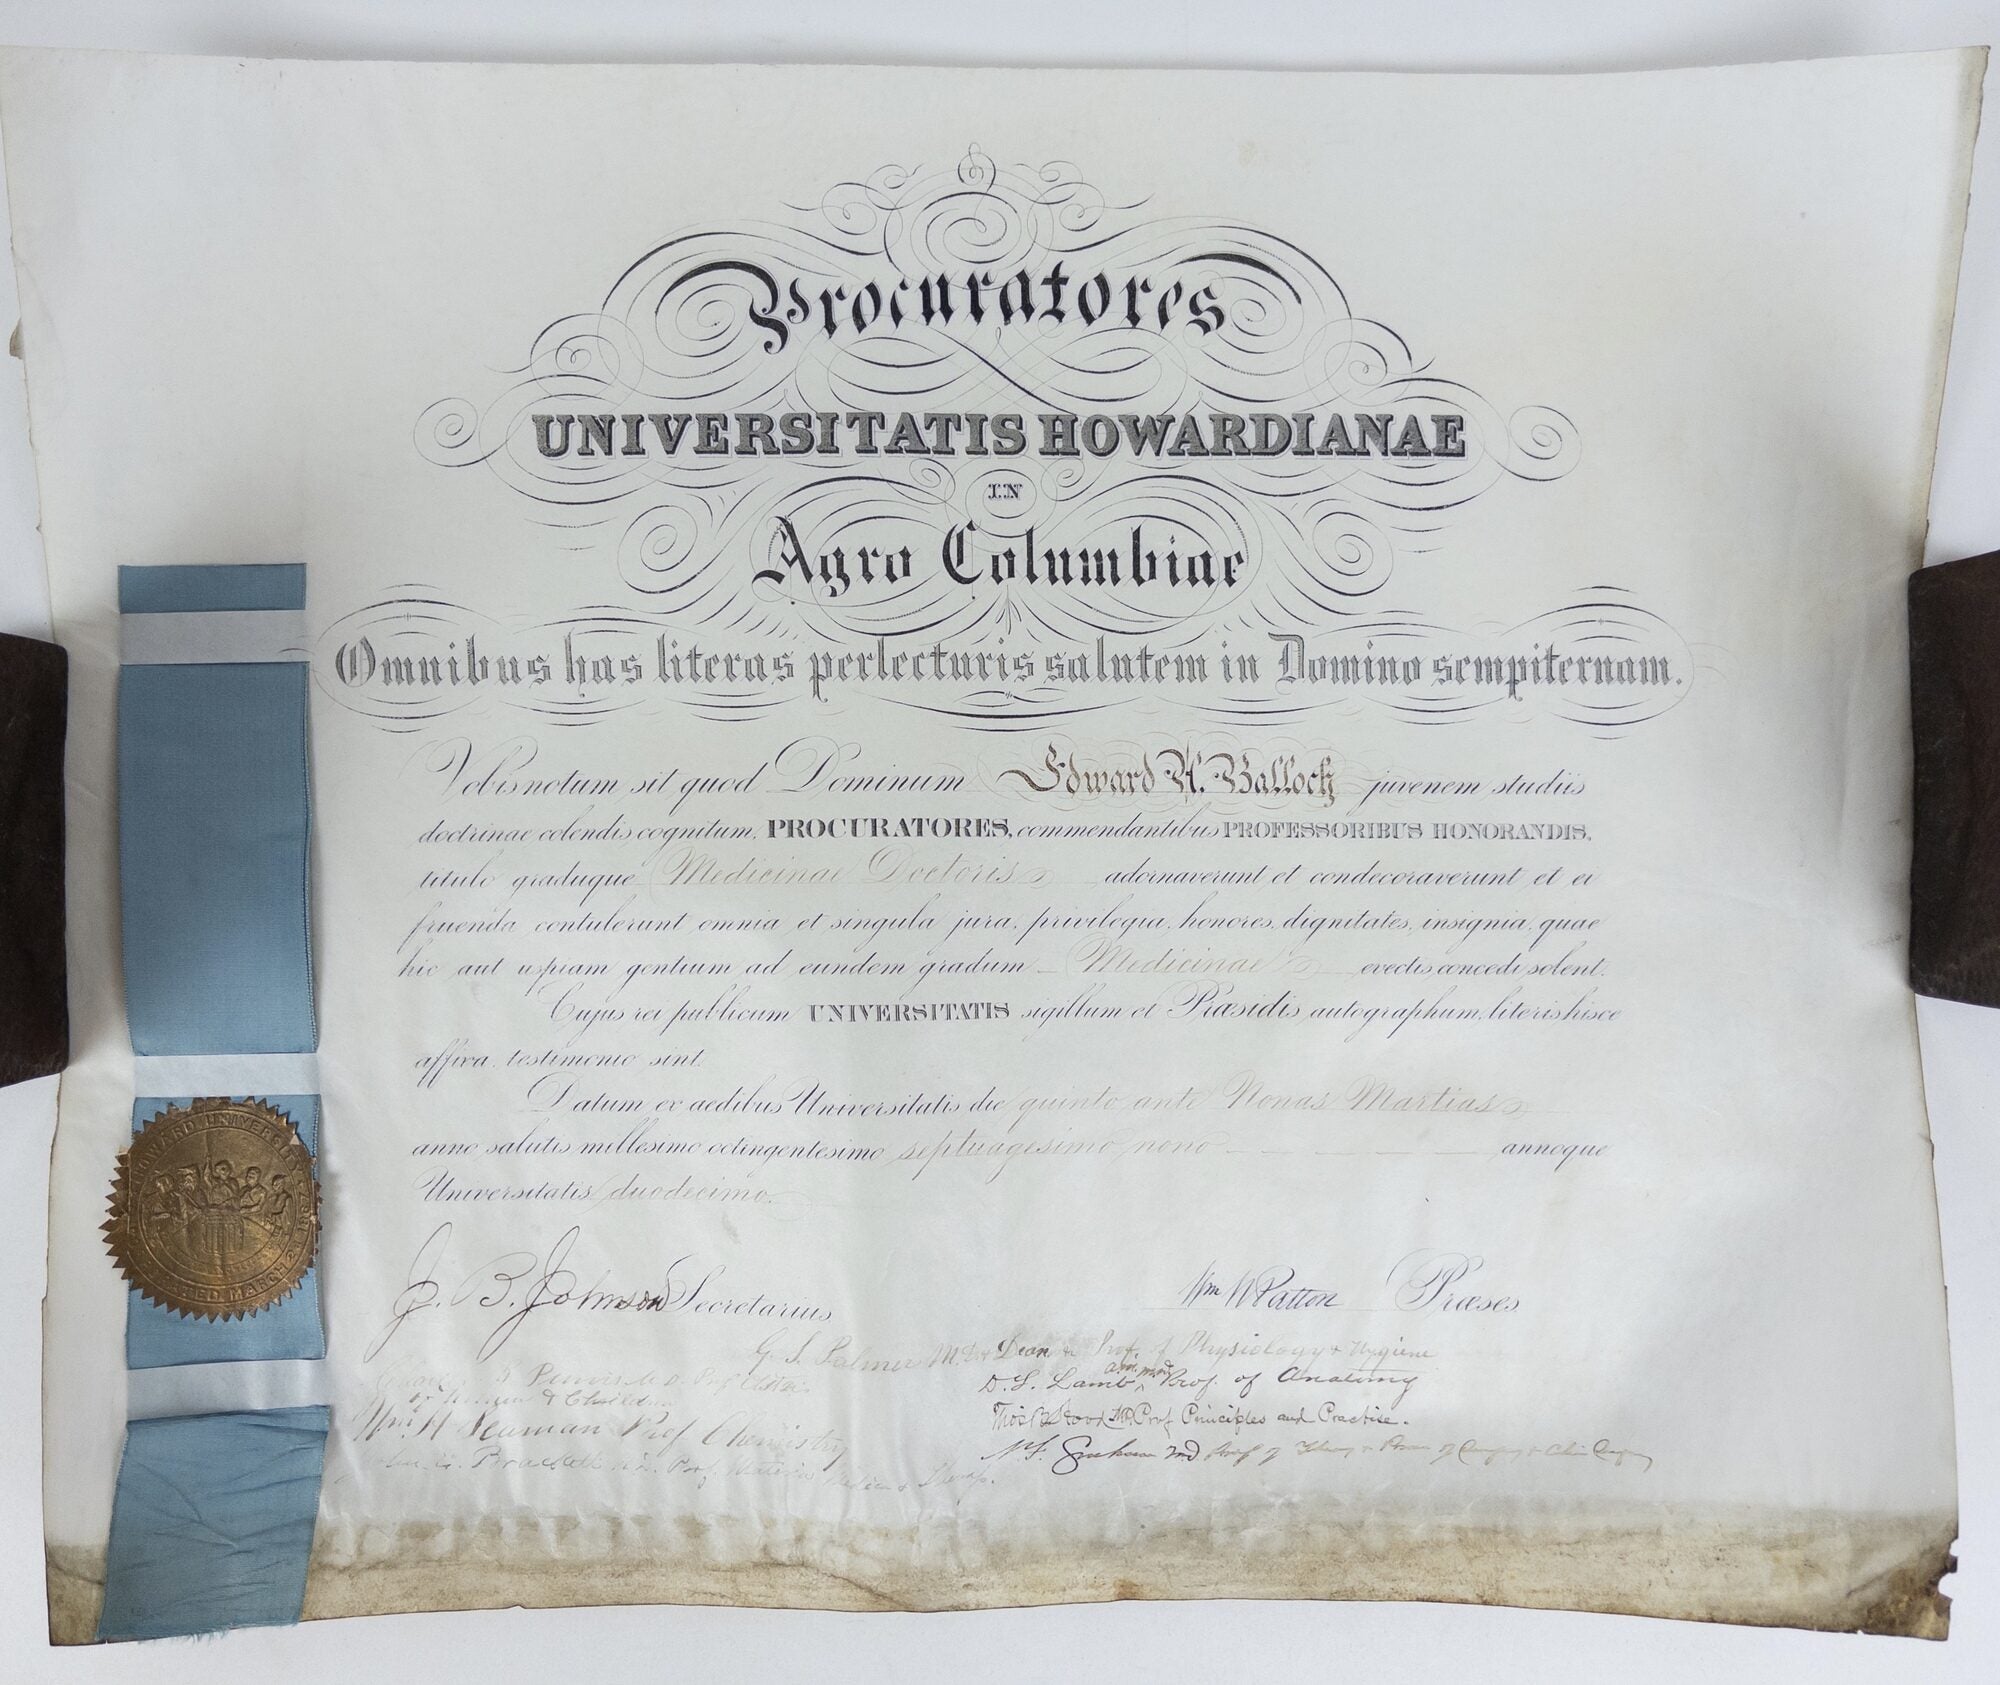 Procuratores
UNIVERSITATIS HOWARDIANAE
IN
Agro Columbiae
Omnibus has literas perlecturis salutem in Domino sempiternam.
Vobis notum sit quod Dominum Edward A. Balloch juvenem studiis
doctrinae colendis cognitum, PROCURATORES, commendantibus PROFESSORIBUS HONORANDIS,
titulo graduque Medicinae Doctoris adornaverunt et condecoraverunt et ei
fruenda contulerunt omnia et singula jura, privilegia, honores, dignitates, insignia, quae
hic aut uspiam gentium ad eundem gradum Medicinae evectis concedi solent.
Cujus rei publicum UNIVERSITATIS sigillum et Præsidis autographum, literis hisce
affixa, testimonio sint.
Datum ex aedibus Universitatis die quinto ante Nonas Martias
anno salutis millesimo octingentesimo septuagesimo nono annoque
Universitatis duodecimo.
HOWARD UNIVERSITY
MARCH 2 1867
J. B. Johnson Secretarius
Wm W Patton Præses
G. S. Palmer M.D. Dean & Prof. of Physiology & Hygiene
D. S. Lamb A.M. M.D. Prof. of Anatomy
Prof Principles and Practise.
Prof Chemistry
Prof. Materia Medica &